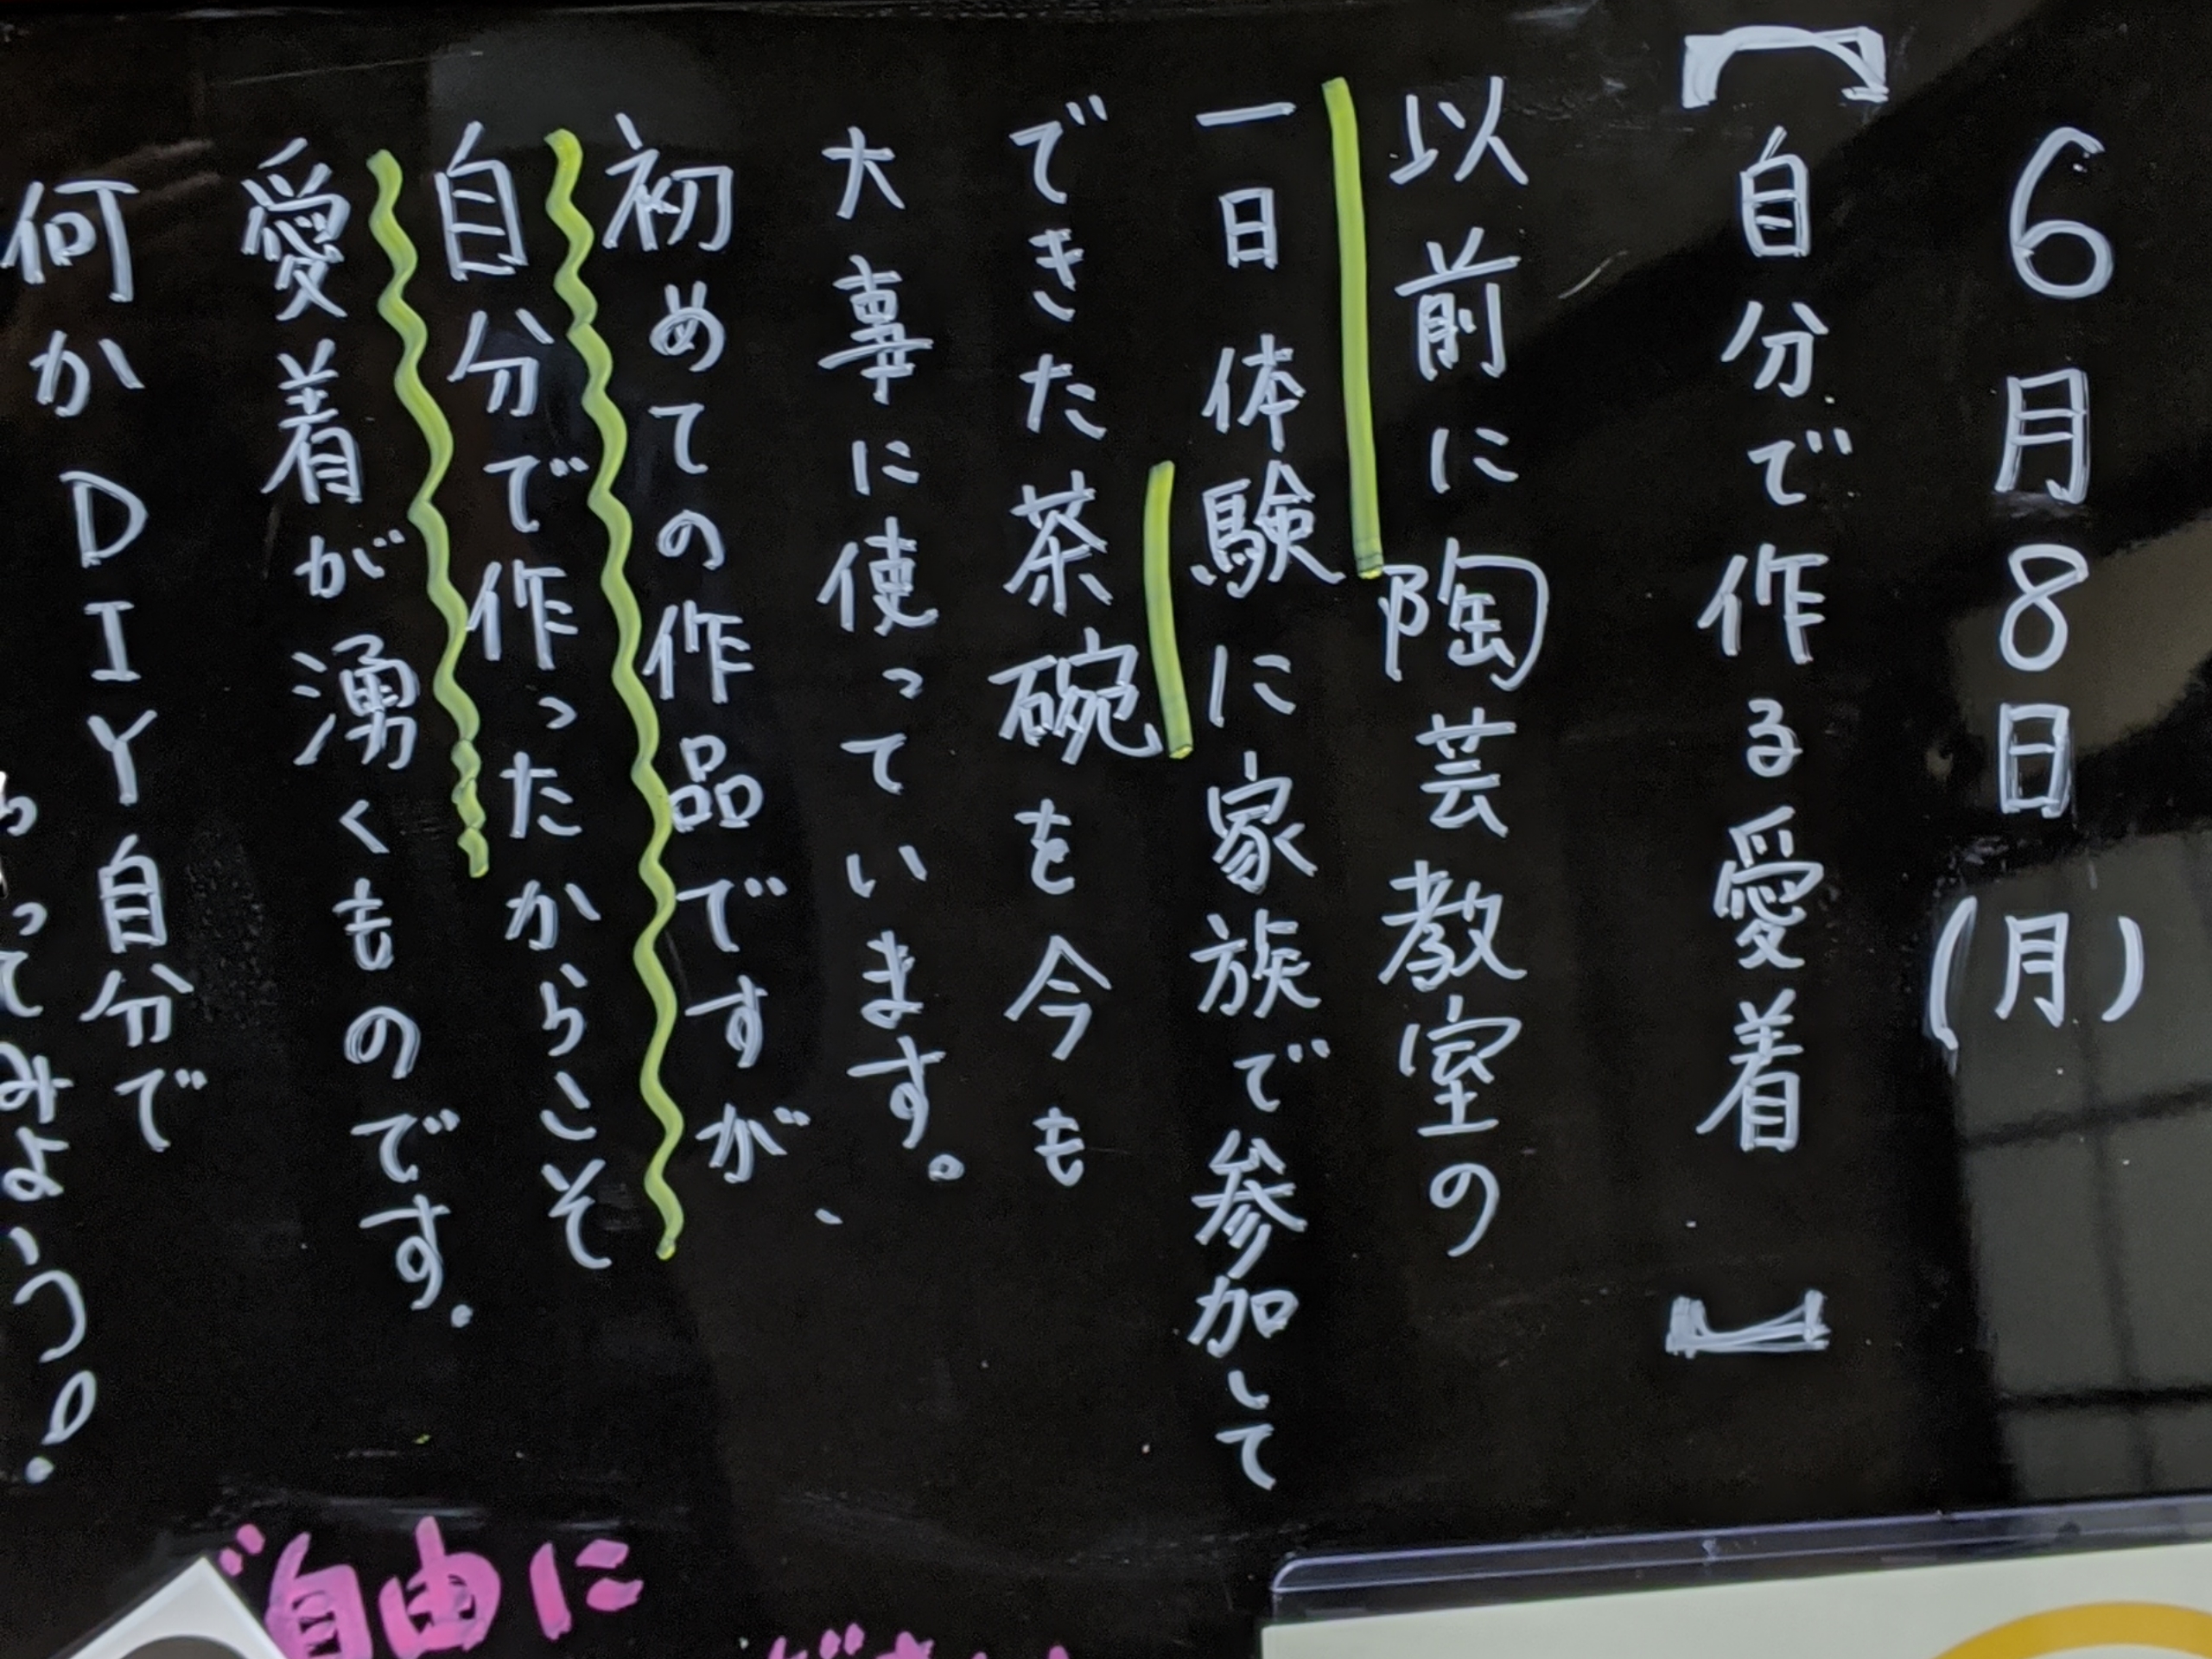 6月8日(月)
【自分で作る愛着】
以前に陶芸教室の
一日体験に家族で参加して
できた茶碗を今も
大事に使っています。
初めての作品ですが、
自分で作ったからこそ
愛着が湧くものです。
何かDIY自分で
ってみよう!
ご自由に